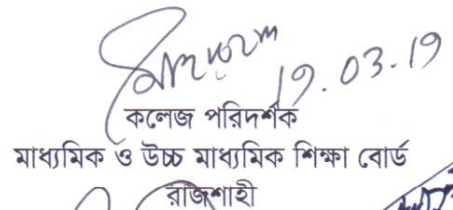 19.03.19
কলেজ পরিদর্শক
মাধ্যমিক ও উচ্চ মাধ্যমিক শিক্ষা বোর্ড
রাজশাহী